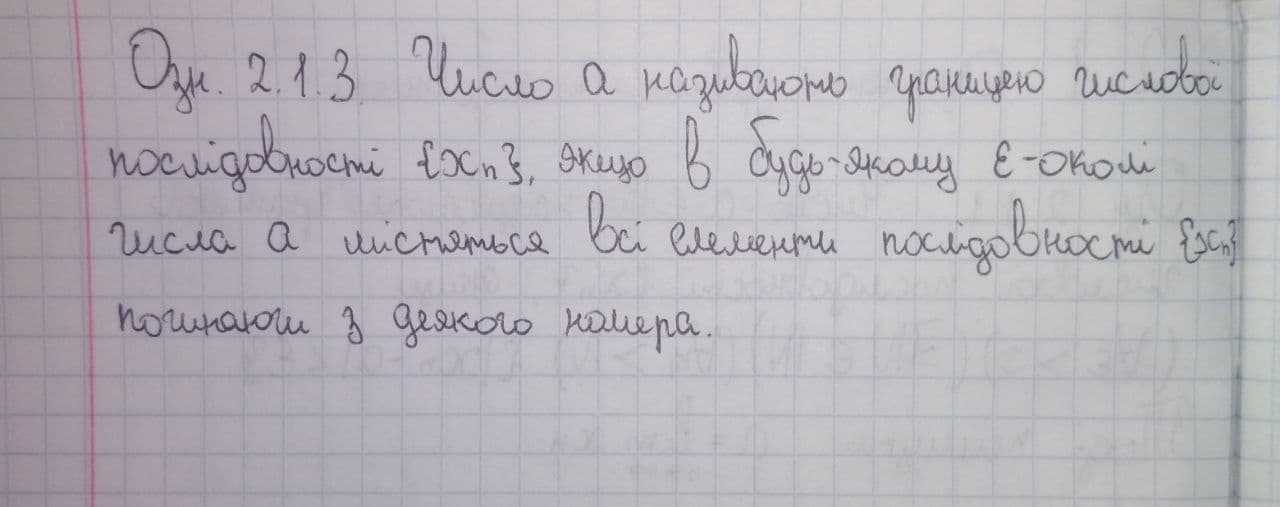 Озн. 2.1.3. Число a називають границею числової
послідовності {xn}, якщо в будь-якому ε-околі
числа a містяться всі елементи послідовності {xn}
починаючи з деякого номера.